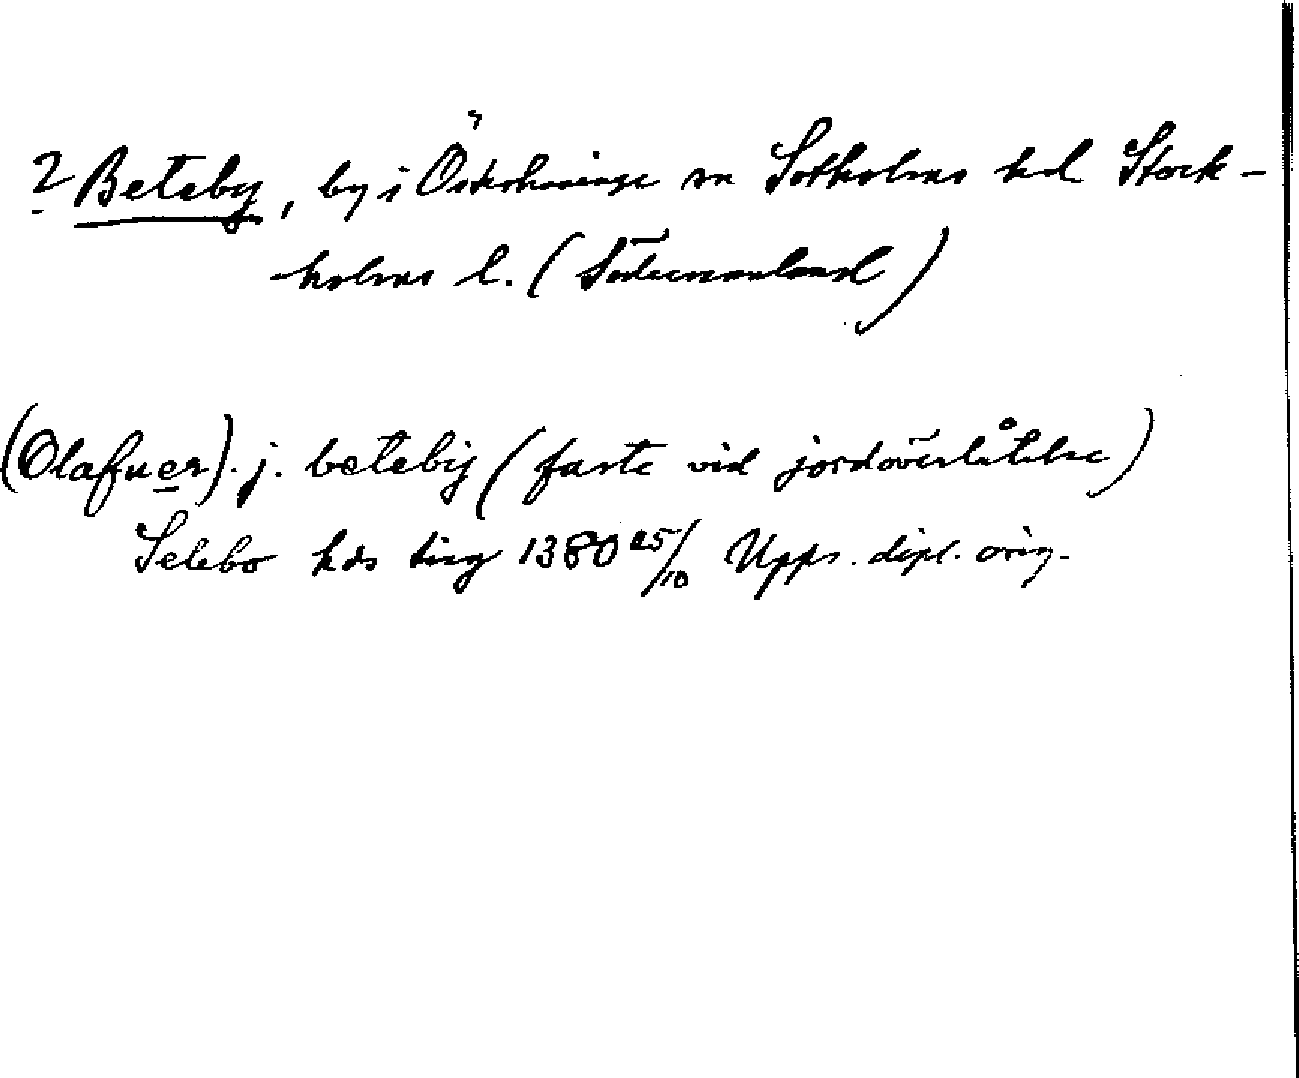 ? Beteby, by i Österhaninge sn Sotholms hd Stock-
holms l. (Södermanland)
(Olafuer). j. betebij (faste vid jordöverlåtelse)
Selebo hds ting 1380 25/10 Upps. dipl. orig.